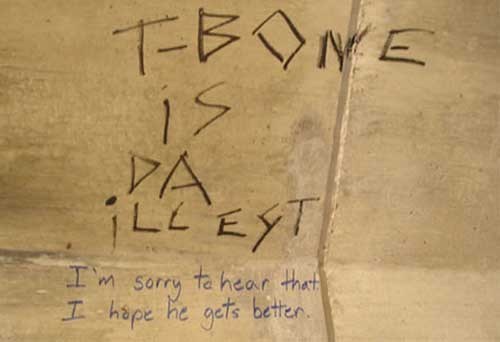 T-BONE
iS
DA
iLLEST
I'm sorry to hear that
I hope he gets better.